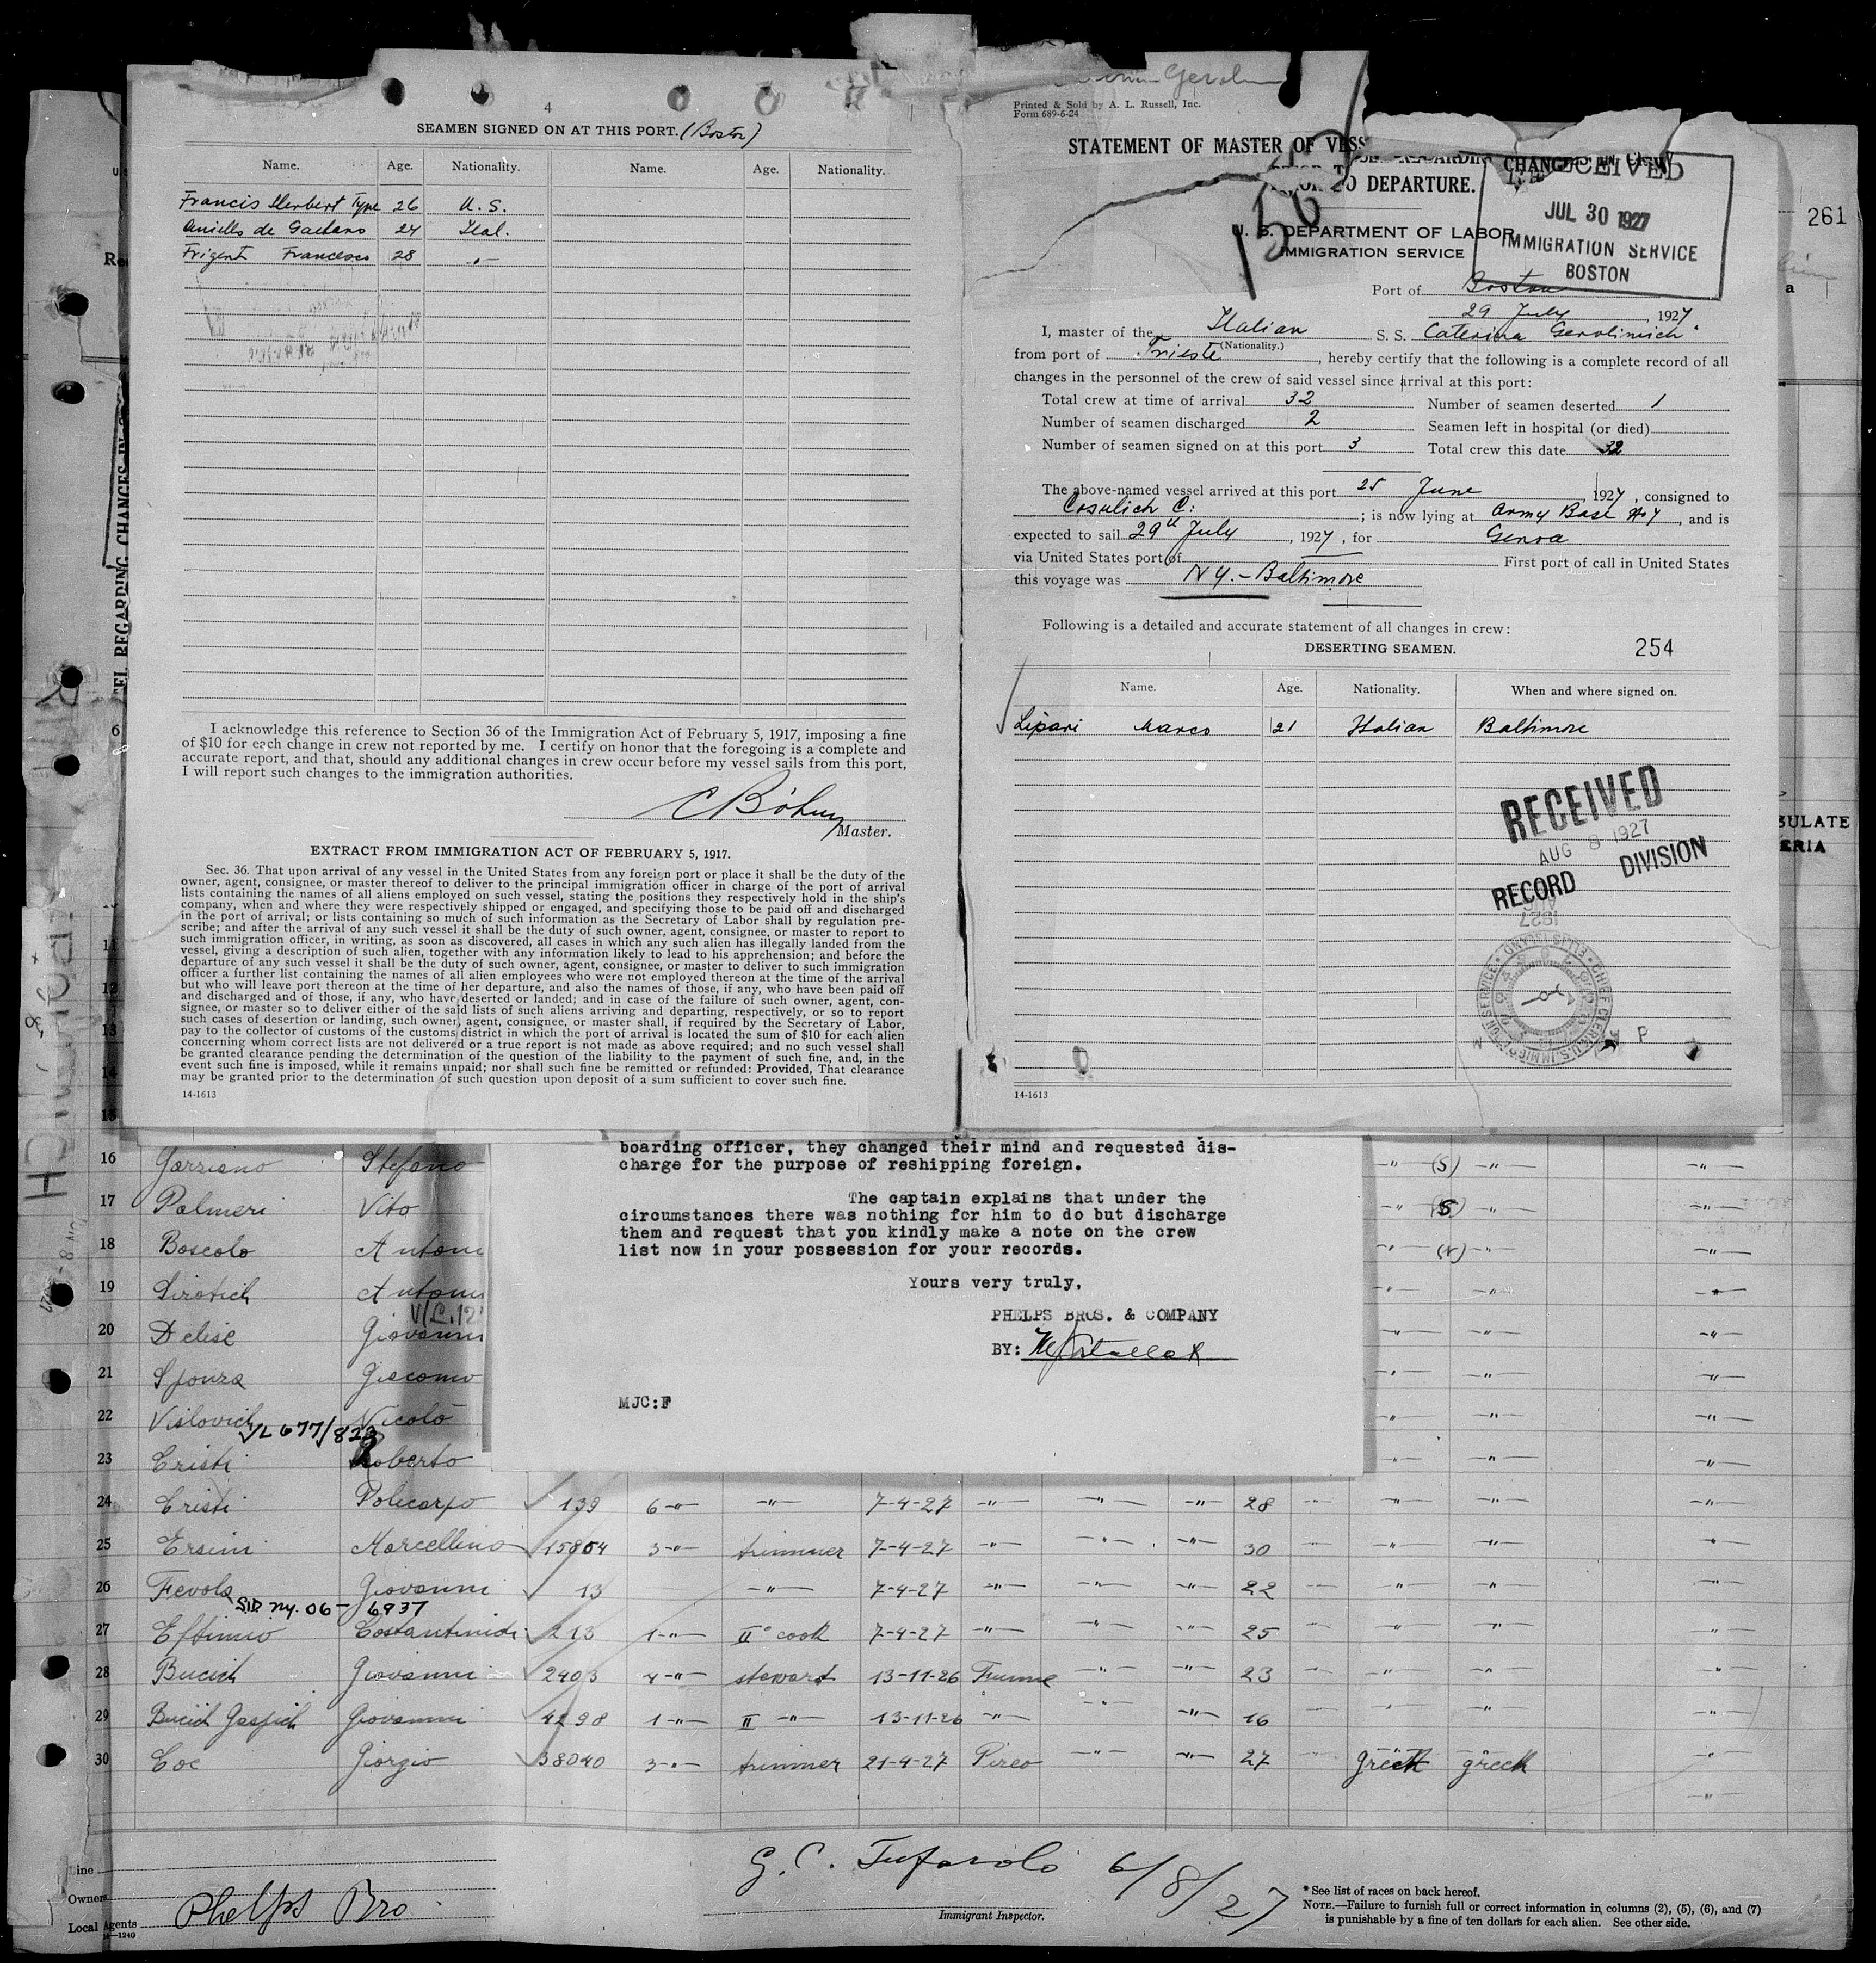 4
SEAMEN SIGNED ON AT THIS PORT. (Boston)
Name. Age. Nationality. Name. Age. Nationality.
Francis Herbert Type 26 U. S.
Aniello de Gaetano 24 Ital.
Frigent Francesco 28 -"-
I acknowledge this reference to Section 36 of the Immigration Act of February 5, 1917, imposing a fine
of $10 for each change in crew not reported by me. I certify on honor that the foregoing is a complete and
accurate report, and that, should any additional changes in crew occur before my vessel sails from this port,
I will report such changes to the immigration authorities.
Master.
EXTRACT FROM IMMIGRATION ACT OF FEBRUARY 5, 1917.
Sec. 36. That upon arrival of any vessel in the United States from any foreign port or place it shall be the duty of the
owner, agent, consignee, or master thereof to deliver to the principal immigration officer in charge of the port of arrival
lists containing the names of all aliens employed on such vessel, stating the positions they respectively hold in the ship's
company, when and where they were respectively shipped or engaged, and specifying those to be paid off and discharged
in the port of arrival; or lists containing so much of such information as the Secretary of Labor shall by regulation pre-
scribe; and after the arrival of any such vessel it shall be the duty of such owner, agent, consignee, or master to report to
such immigration officer, in writing, as soon as discovered, all cases in which any such alien has illegally landed from the
vessel, giving a description of such alien, together with any information likely to lead to his apprehension; and before the
departure of any such vessel it shall be the duty of such owner, agent, consignee, or master to deliver to such immigration
officer a further list containing the names of all alien employees who were not employed thereon at the time of the arrival
but who will leave port thereon at the time of her departure, and also the names of those, if any, who have been paid off
and discharged and of those, if any, who have deserted or landed; and in case of the failure of such owner, agent, con-
signee, or master so to deliver either of the said lists of such aliens arriving and departing, respectively, or so to report
such cases of desertion or landing, such owner, agent, consignee, or master shall, if required by the Secretary of Labor,
pay to the collector of customs of the customs district in which the port of arrival is located the sum of $10 for each alien
concerning whom correct lists are not delivered or a true report is not made as above required; and no such vessel shall
be granted clearance pending the determination of the question of the liability to the payment of such fine, and, in the
event such fine is imposed, while it remains unpaid; nor shall such fine be remitted or refunded: Provided, That clearance
may be granted prior to the determination of such question upon deposit of a sum sufficient to cover such fine.
14-1613
Printed & Sold by A. L. Russell, Inc.
Form 689-6-24
STATEMENT OF MASTER OF VESS
CHANGES IN CREW
TO DEPARTURE.
U. S. DEPARTMENT OF LABOR
IMMIGRATION SERVICE
RECEIVED
JUL 30 1927
IMMIGRATION SERVICE
BOSTON
261
Port of Boston
29 July, 1927
I, master of the Italian S. S. Caterina Gerolimich
(Nationality.)
from port of Trieste, hereby certify that the following is a complete record of all
changes in the personnel of the crew of said vessel since arrival at this port:
Total crew at time of arrival 32 Number of seamen deserted 1
Number of seamen discharged 2 Seamen left in hospital (or died)
Number of seamen signed on at this port 3 Total crew this date 32
The above-named vessel arrived at this port 25 June, 1927, consigned to
Cosulich C: ; is now lying at Army Base No 7, and is
expected to sail 29th July, 1927, for Genoa
via United States port of First port of call in United States
this voyage was N Y. - Baltimore
Following is a detailed and accurate statement of all changes in crew:
DESERTING SEAMEN. 254
Name. Age. Nationality. When and where signed on.
Lipari Marco 21 Italian Baltimore
RECEIVED
AUG 8 1927
RECORD DIVISION
14-1613
EL REGARDING CHANGES IN
SULATE
ERIA
boarding officer, they changed their mind and requested dis-
charge for the purpose of reshipping foreign.
The captain explains that under the
circumstances there was nothing for him to do but discharge
them and request that you kindly make a note on the crew
list now in your possession for your records.
Yours very truly,
PHELPS BROS. & COMPANY
BY:
MJC:F
16 Garziano Stefano -"- (S) -"- -"-
17 Palmeri Vito -"- (S) -"- -"-
18 Boscolo Antoni -"-
19 Sirotich Antoni
20 Delise Giovanni
21 Sponza Giacomo
22 Vislovich Nicolo
V/L 677/823
23 Cristi Roberto
24 Cristi Policarpo 139 6-"- -"- 7-4-27 -"- -"- -"- 28
25 Ersini Marcellino 15804 3-"- trimmer 7-4-27 -"- -"- -"- 30
26 Fevola Giovanni 13 -"- 7-4-27 -"- -"- -"- 22
SID NY. 06- 6937
27 Eftimio Costantinidi 213 1-"- II° cook 7-4-27 -"- -"- -"- 25
28 Bucich Giovanni 2403 4-"- steward 13-11-26 Fiume -"- -"- 23
29 Bucich Gaspich Giovanni 4298 1-"- II -"- 13-11-26 -"- -"- -"- 16
30 Coc Giorgio 38040 3-"- trimmer 21-4-27 Pireo -"- -"- 27 greek greek
Line
Owners
Local Agents Phelps Bro
14-1240
G. C. Tufarolo 6/8/27
Immigrant Inspector.
* See list of races on back hereof.
NOTE.—Failure to furnish full or correct information in columns (2), (5), (6), and (7)
is punishable by a fine of ten dollars for each alien. See other side.